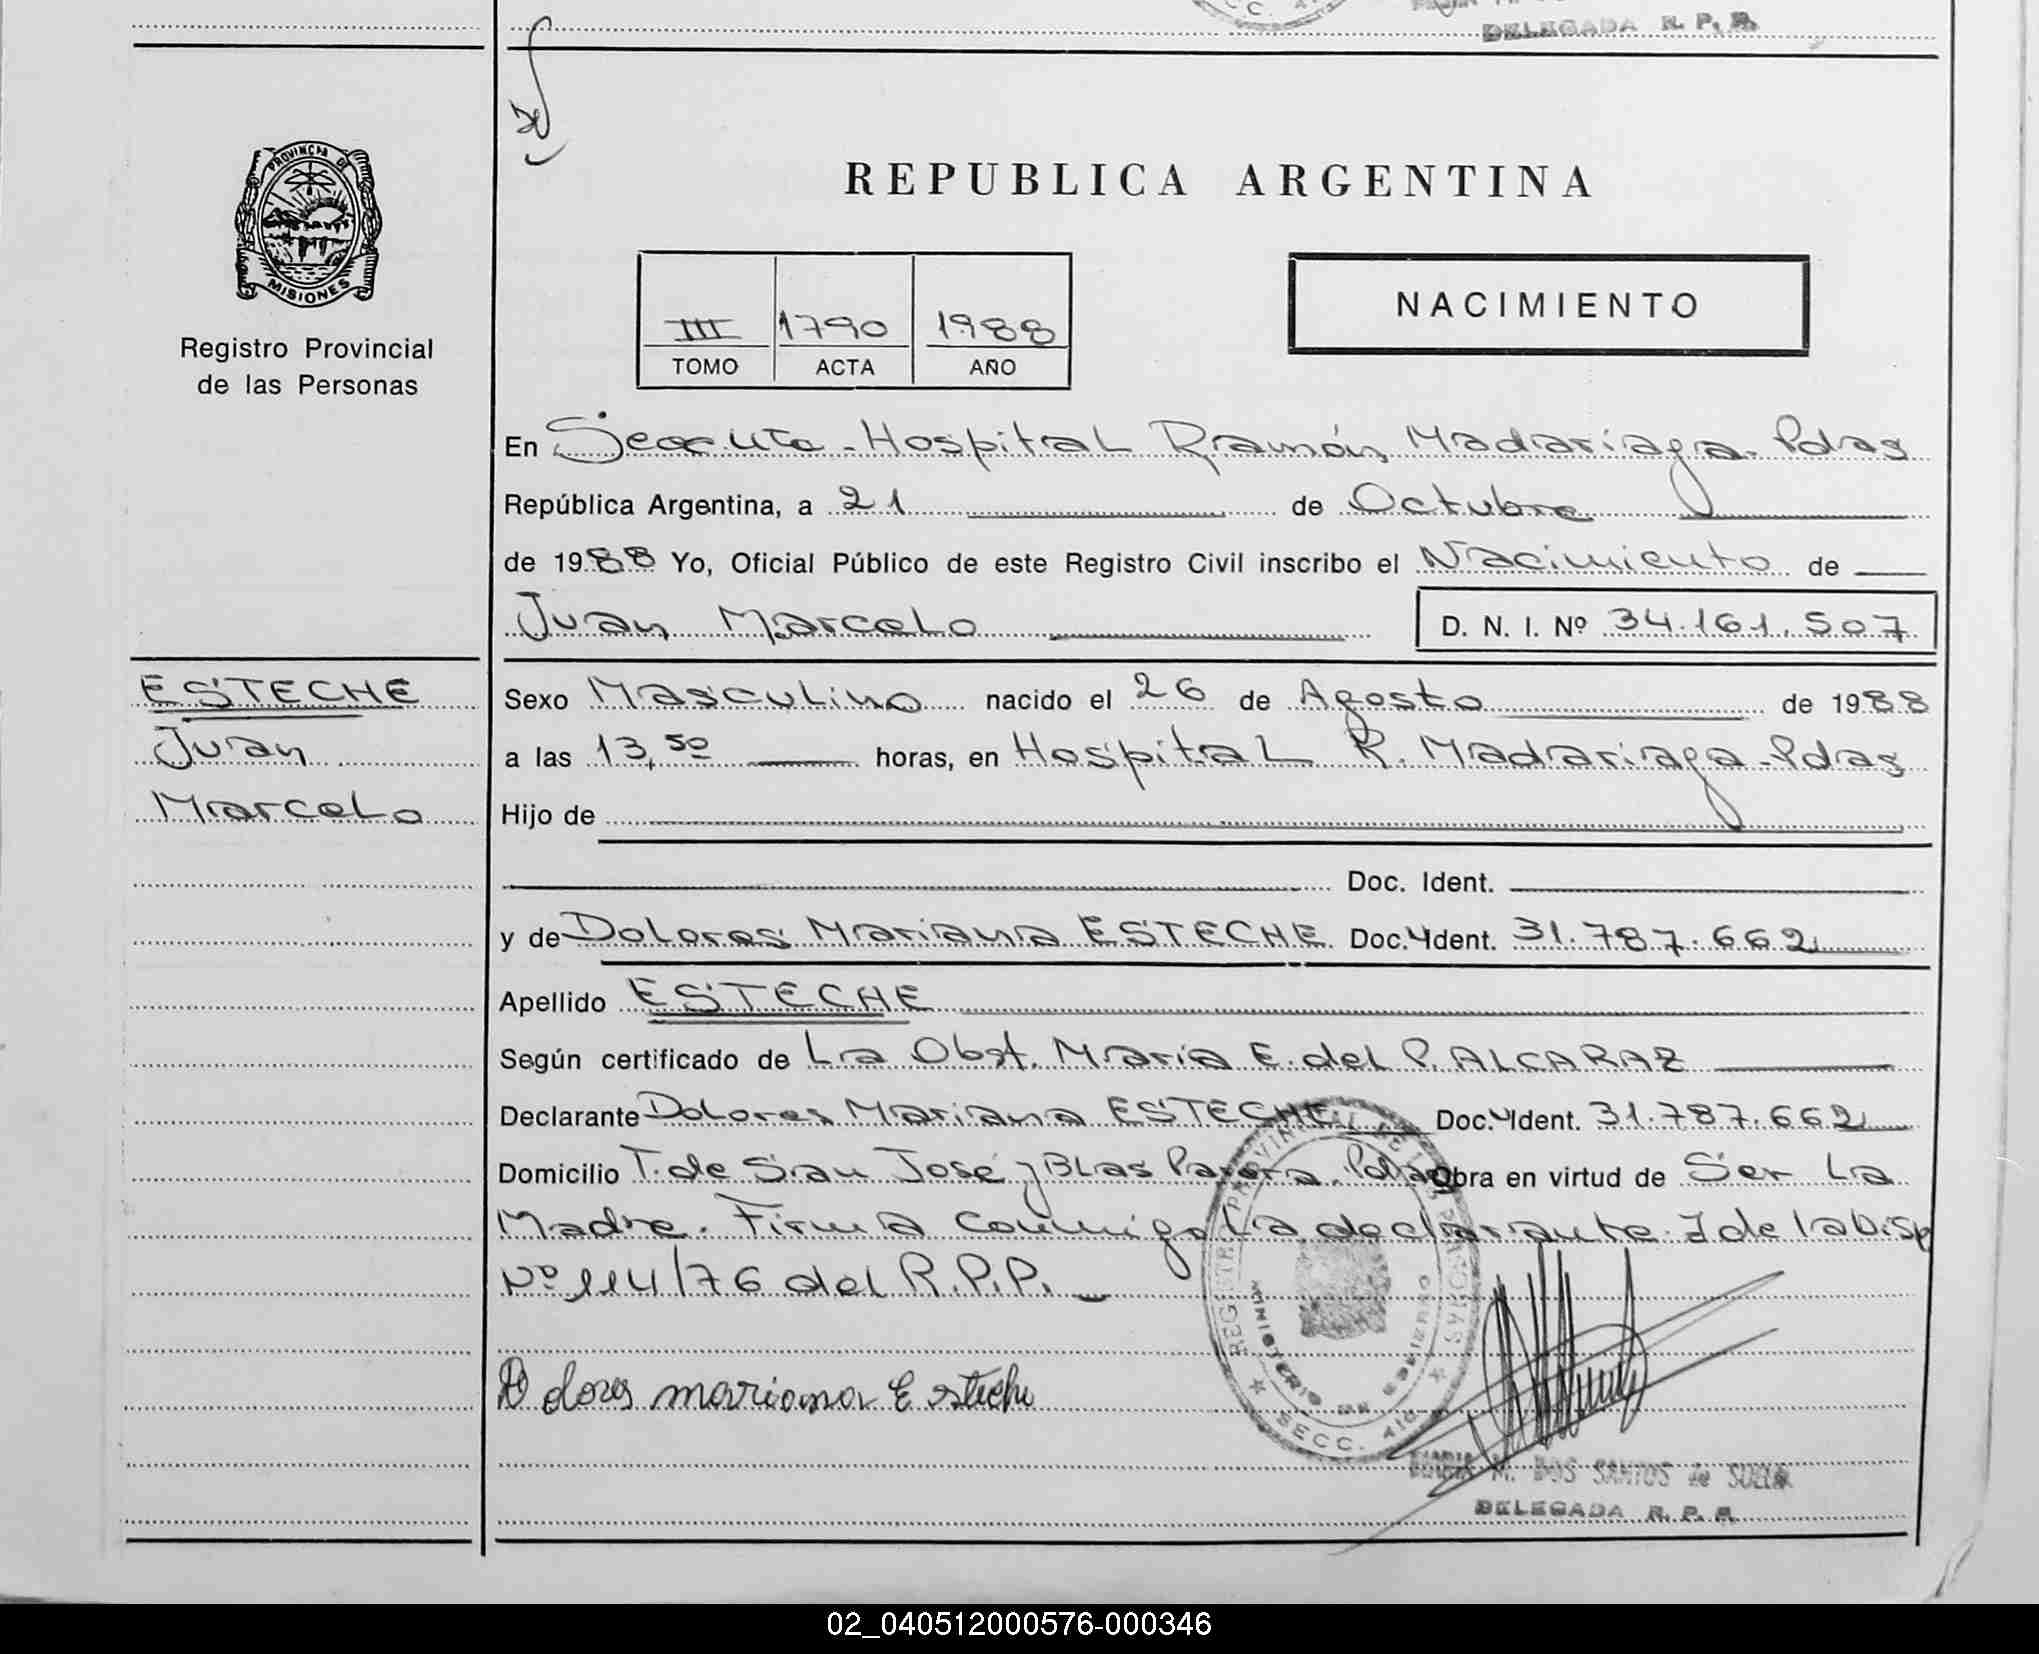 DELEGADA R. P. P.
PROVINCIA DE
MISIONES
Registro Provincial
de las Personas
REPUBLICA ARGENTINA
III 1790 1988
TOMO ACTA AÑO
NACIMIENTO
En Hospital Ramón Madariaga. Pdas
República Argentina, a 21 de Octubre
de 1988 Yo, Oficial Público de este Registro Civil inscribo el Nacimiento de
Juan Marcelo D. N. I. Nº 34.161.507
ESTECHE
Juan
Marcelo
Sexo Masculino nacido el 26 de Agosto de 1988
a las 13,50 horas, en Hospital R. Madariaga - Pdas
Hijo de
Doc. Ident.
y de Dolores Mariana ESTECHE Doc. Ident. 31.787.662
Apellido ESTECHE
Según certificado de La Obst. María E. del P. ALCARAZ
Declarante Dolores Mariana ESTECHE Doc. Ident. 31.787.662
Domicilio T. de San José y Blas Parera. Pdas Obra en virtud de Ser La
Madre. Firma conmigo La declarante. de la Disp
Nº 114/76 del R.P.P.
Dolores mariana Esteche
REGISTRO PROVINCIAL DE LAS PERSONAS
MINISTERIO DE GOBIERNO
SECC.
M. DOS SANTOS de
DELEGADA R. P. P.
02_040512000576-000346